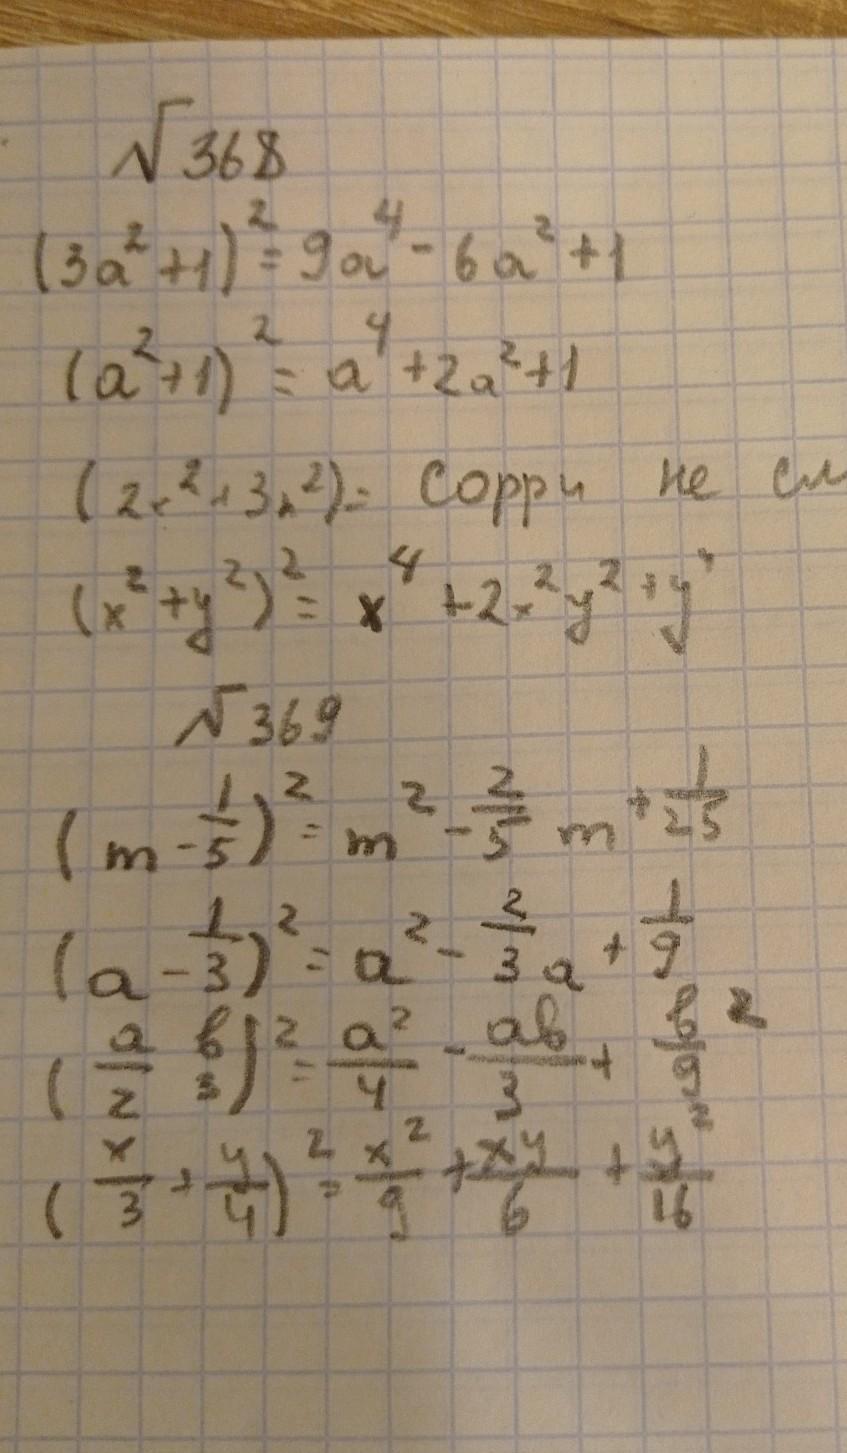 √368
(3a²+1)²=9a⁴-6a²+1
(a²+1)²=a⁴+2a²+1
(2x²+3x²)= сорри не см
(x²+y²)²=x⁴+2x²y²+y⁴
√369
(m-1/5)²=m²-2/5 m+1/25
(a-1/3)²=a²-2/3 a+1/9
(a/2 в/3)²=a²/4-aв/3+в²/9
(x/3+y/4)²=x²/9+xy/6+y²/16